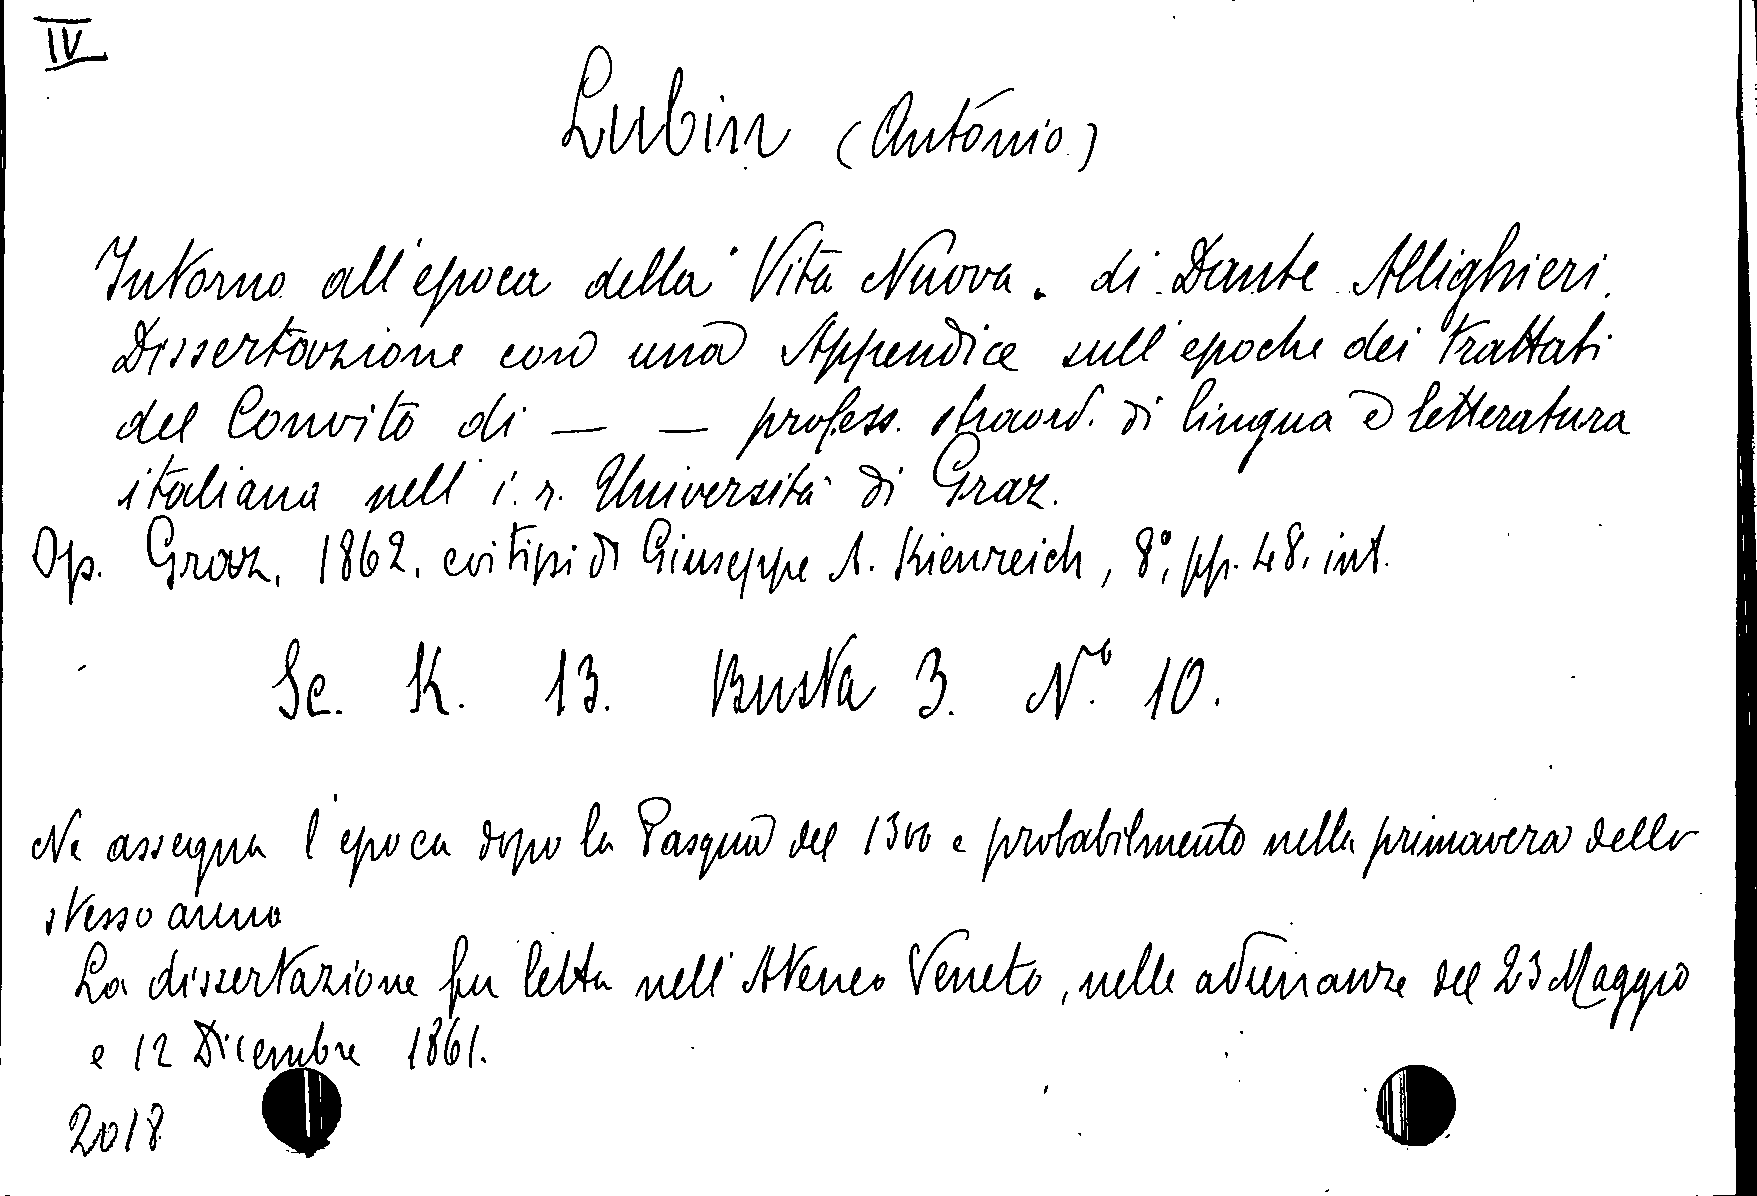 IV
Lubin (Antonio)
Intorno all'epoca della "Vita Nuova" di Dante Allighieri.
Dissertazione con una Appendice sull'epoche dei trattati
del Convito di — — profess. straord. di lingua e letteratura
italiana nell' i. r. Università di Graz.
Op. Graz, 1862. coi tipi di Giuseppe A. Kienreich, 8°, pp. 48. int.
Sc. K. 13. Busta 3. N.° 10.
Ne assegna l'epoca dopo la Pasqua del 1300 e probabilmento nella primavera dello
stesso anno
La dissertazione fu letta nell'Ateneo Veneto, nelle adunanze del 23 Maggio
e 12 Dicembre 1861.
2018